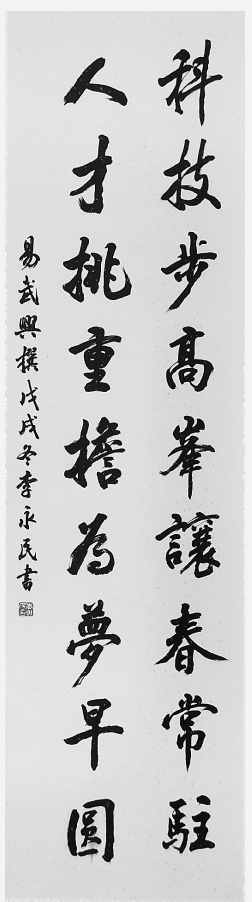 科技步高峯讓春常駐
人才挑重擔為夢早圓
易武興撰戊戌冬李永民書